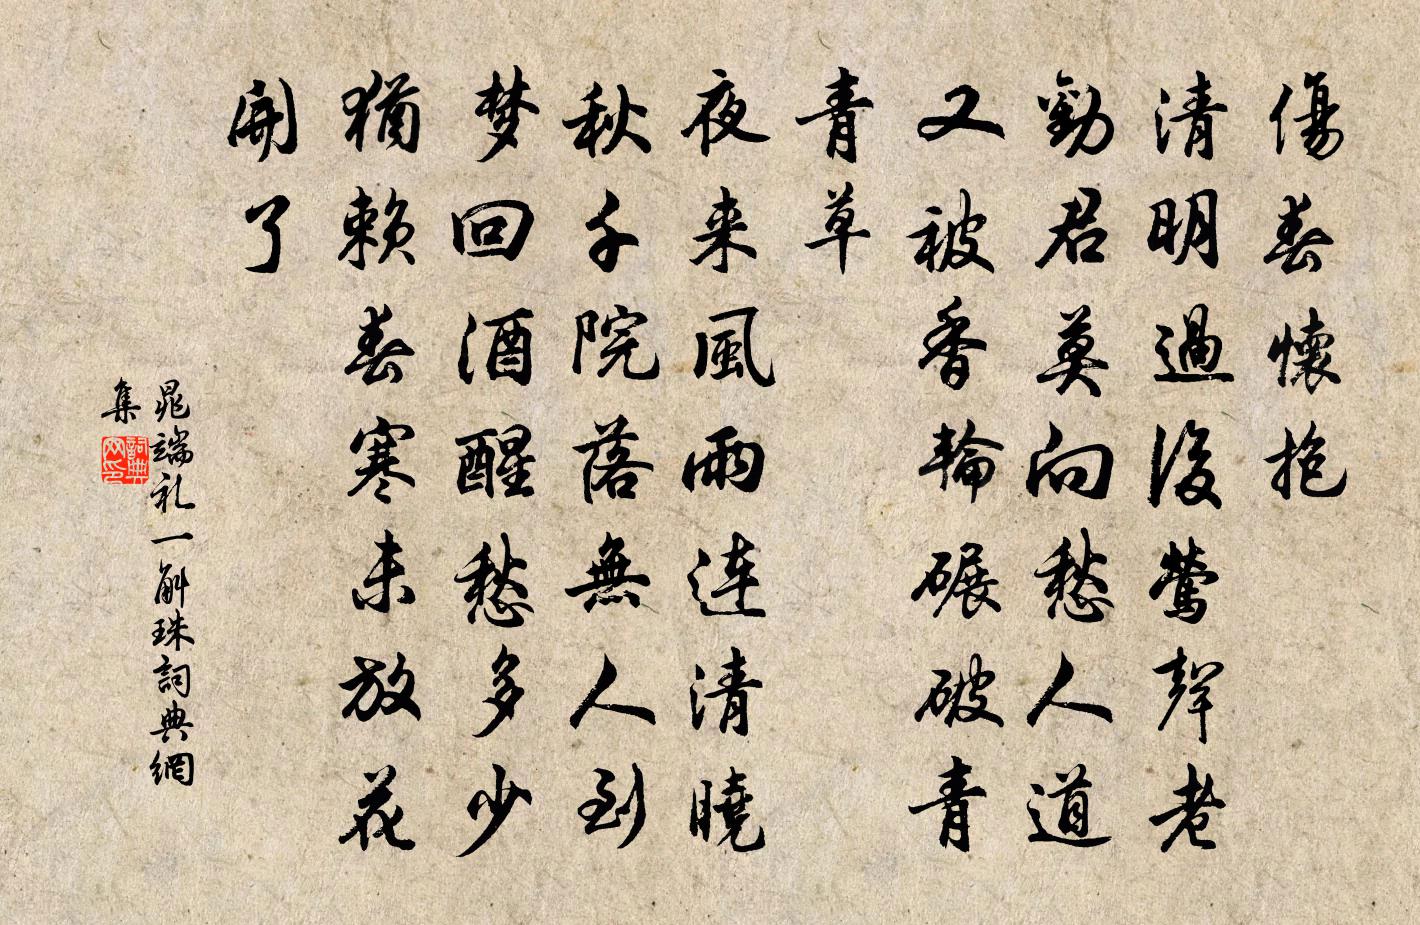 傷春懷抱
清明過後鶯聲老
勸君莫向愁人道
又被香輪碾破青
青草
夜来風雨連清曉
秋千院落無人到
梦回酒醒愁多少
猶赖春寒未放花
開了
晁端礼一斛珠詞典網
集
詞典
网印